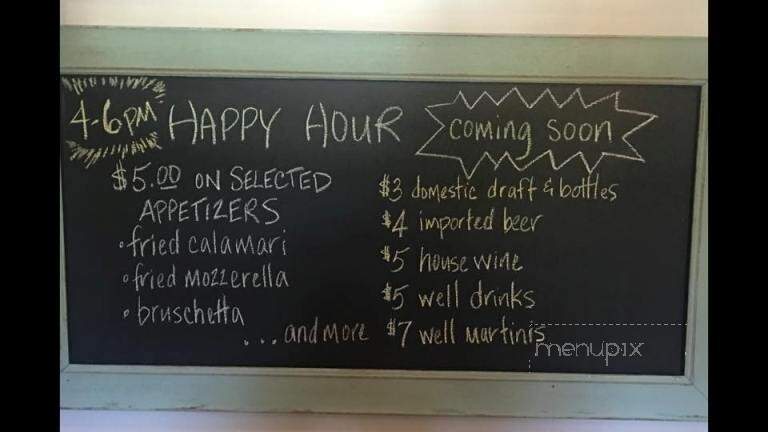 4-6PM HAPPY HOUR coming soon
$5.00 ON SELECTED
APPETIZERS
• fried calamari
• fried mozzerella
• bruschetta
... and more
$3 domestic draft & bottles
$4 imported beer
$5 house wine
$5 well drinks
$7 well martinis
menupix